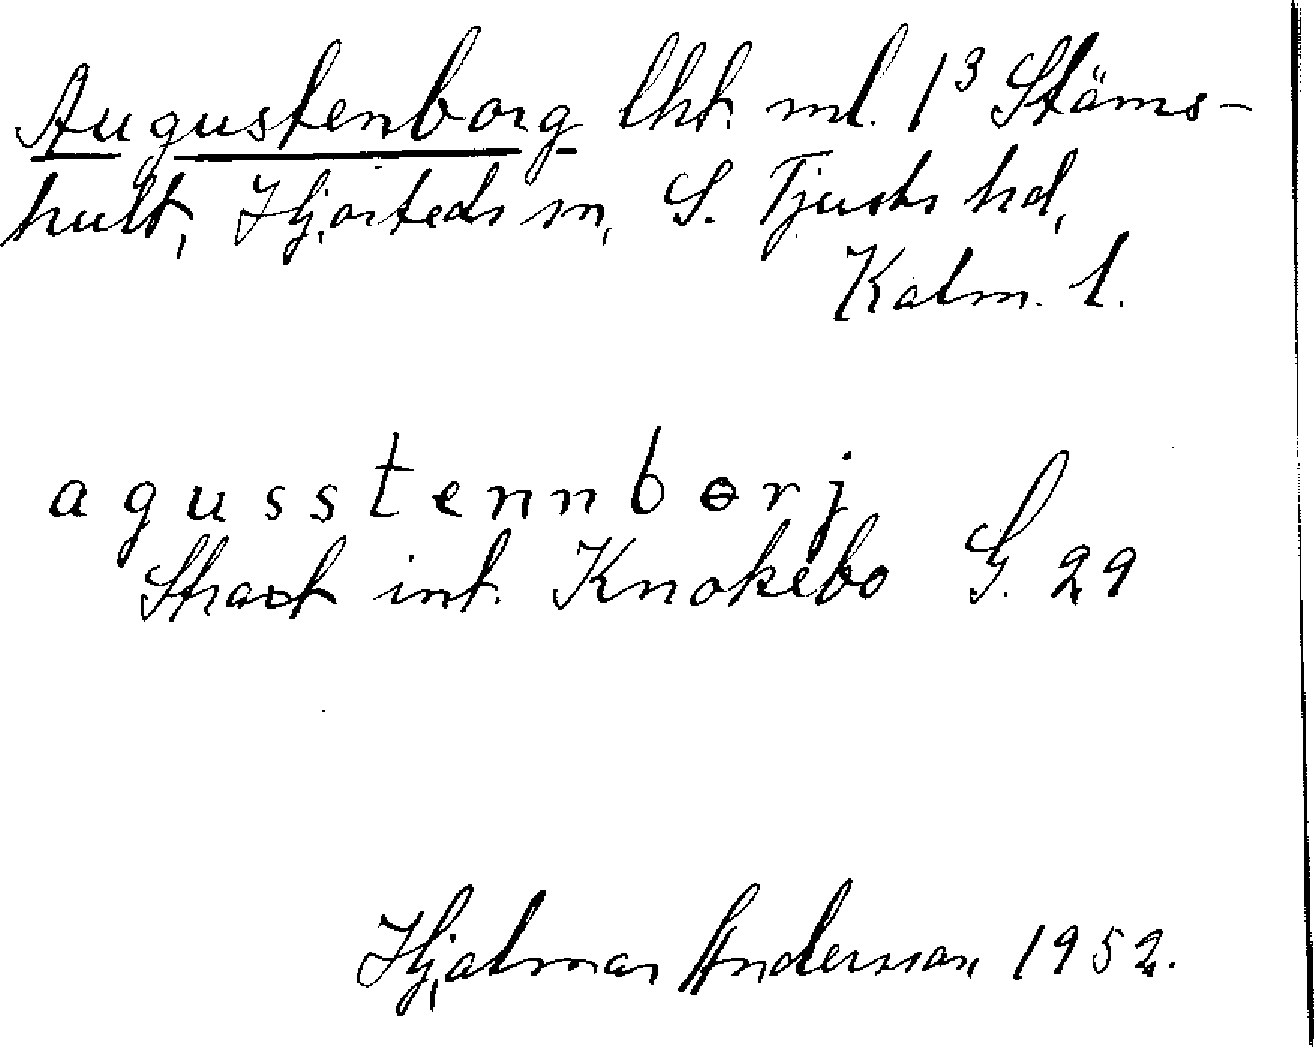 Augustenborg lht. ml. 1³ Stäms-
hult, Hjorteds sn, S. Tjusts hd,
Kalm. l.
agusstennbɵrj
Strax int. Knokebo G. 29
Hjalmar Andersson 1952.